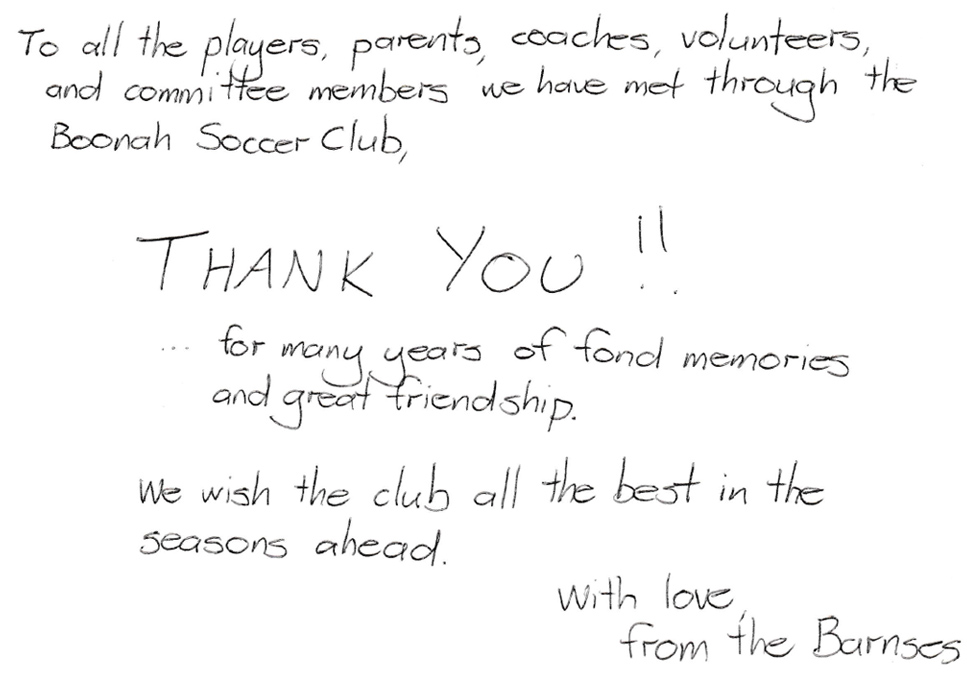 To all the players, parents, coaches, volunteers,
and committee members we have met through the
Boonah Soccer Club,
THANK YOU!!
... for many years of fond memories
and great friendship.
We wish the club all the best in the
seasons ahead.
With love,
from the Barnses